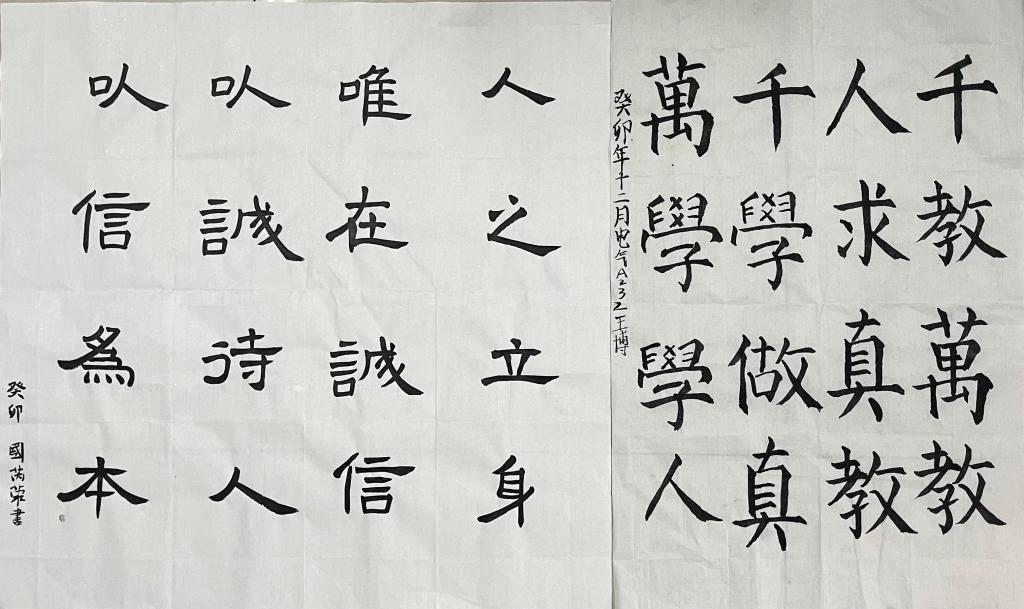 千教萬教
人求真教
千學做真
萬學學人
癸卯年十二月电气A232王博
人之立身
唯在誠信
以誠待人
以信為本
癸卯 國芮榮書